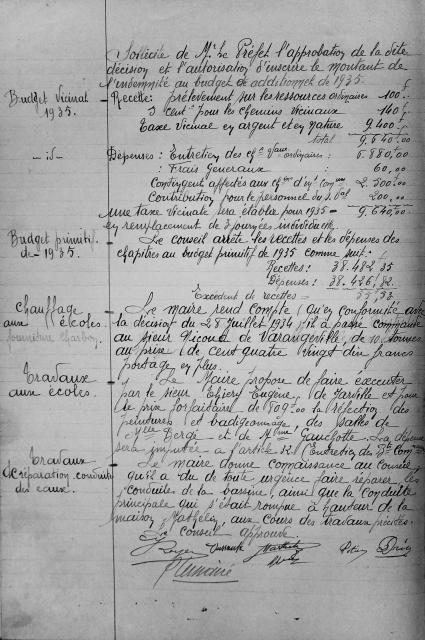 Sollicite de Mr Le Préfet l'approbation de la dite
décision et l'autorisation d'inscrire le montant de
l'indemnité au budget additionnel de 1935.
Budget Vicinal
1935.
Recette: prélèvement sur les ressources ordinaires 100
5 cent. pour les chemins vicinaux 140
Taxe Vicinale en argent et en nature 9400
Total 9.640,00
- id -
Dépenses: Entretien des ordinaires: 6.880,00
: Frais Généraux 60,00
Contingent affectés aux 2.500,00
Contribution pour le personnel du 200,00
une taxe Vicinale sera établie pour 1935 = 9.640,00
en remplacement de 3 journées individuelles.
Budget primitif
de - 1935.
Le conseil arrête les recettes et les dépenses des
chapitres au budget primitif de 1935 comme suit:
Recettes: 38.482,35
Dépenses: 38.426,82
Excédent de recettes = 55,53
Chauffage
aux écoles.
fourniture charbon
Le maire rend compte qu'en conformité avec
la décision du 28 Juillet 1934, il a passé commande
au sieur Nicoud de Varangéville, de 10 tonnes
au prix de cent quatre vingt dix francs
portage en plus.
Travaux
aux écoles.
Le Maire propose de faire exécuter
par le sieur Thiery Eugène, de Jarville et pour
le prix forfaitaire de 809,00 la réfection des
peintures et badigeonnage des salles de
Melle Bergé et de Mme Gauchotte. La dépense
sera imputée à l'article 52
Travaux
de réparation conduite
des eaux.
Le maire donne connaissance au Conseil
qu'il a du de toute urgence faire réparer les
conduites de la bassine, ainsi que la conduite
principale qui s'était rompue à hauteur de la
maison, aux cours des travaux précités.
Le conseil approuve.